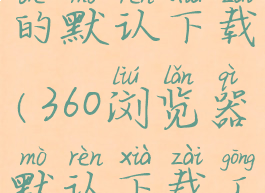 de mò rèn xià zài
的默认下载
liú lǎn qì
(360浏览器
mò rèn xià zài gōng
默认下载工